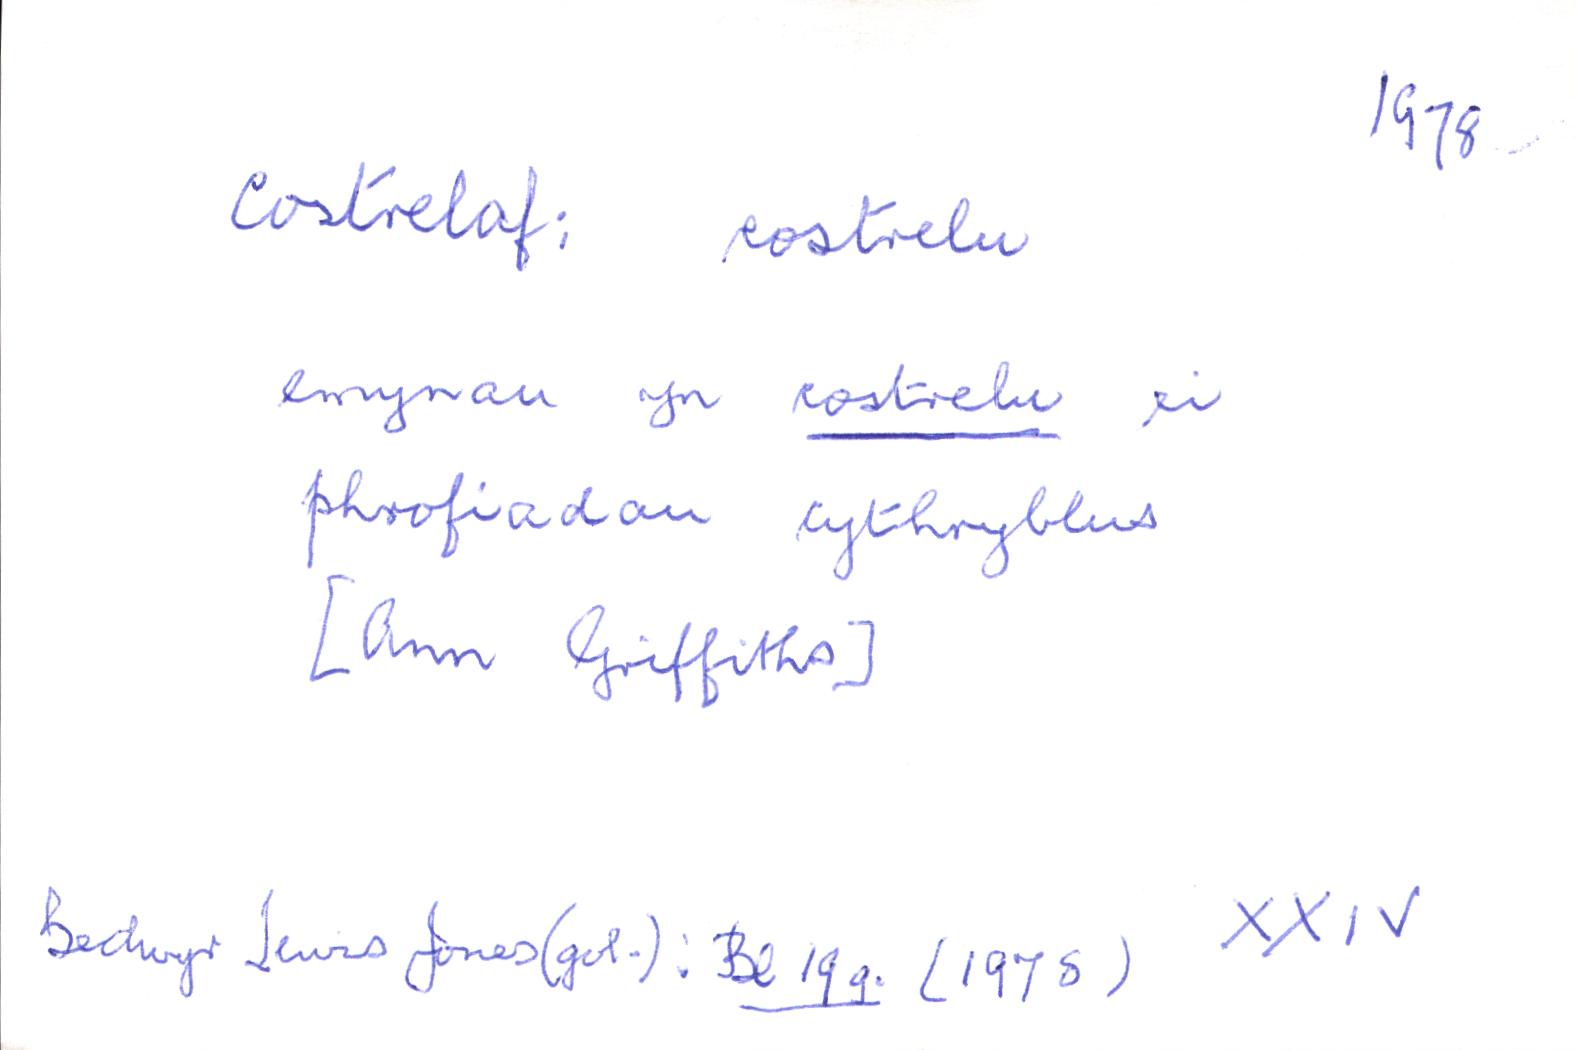 1978
Costrelaf: costrelu
emynau yn costrelu ei
phrofiadau cythryblus
[Ann Griffiths]
Bedwyr Lewis Jones (gol.): Bl 19g. (1978) XXIV